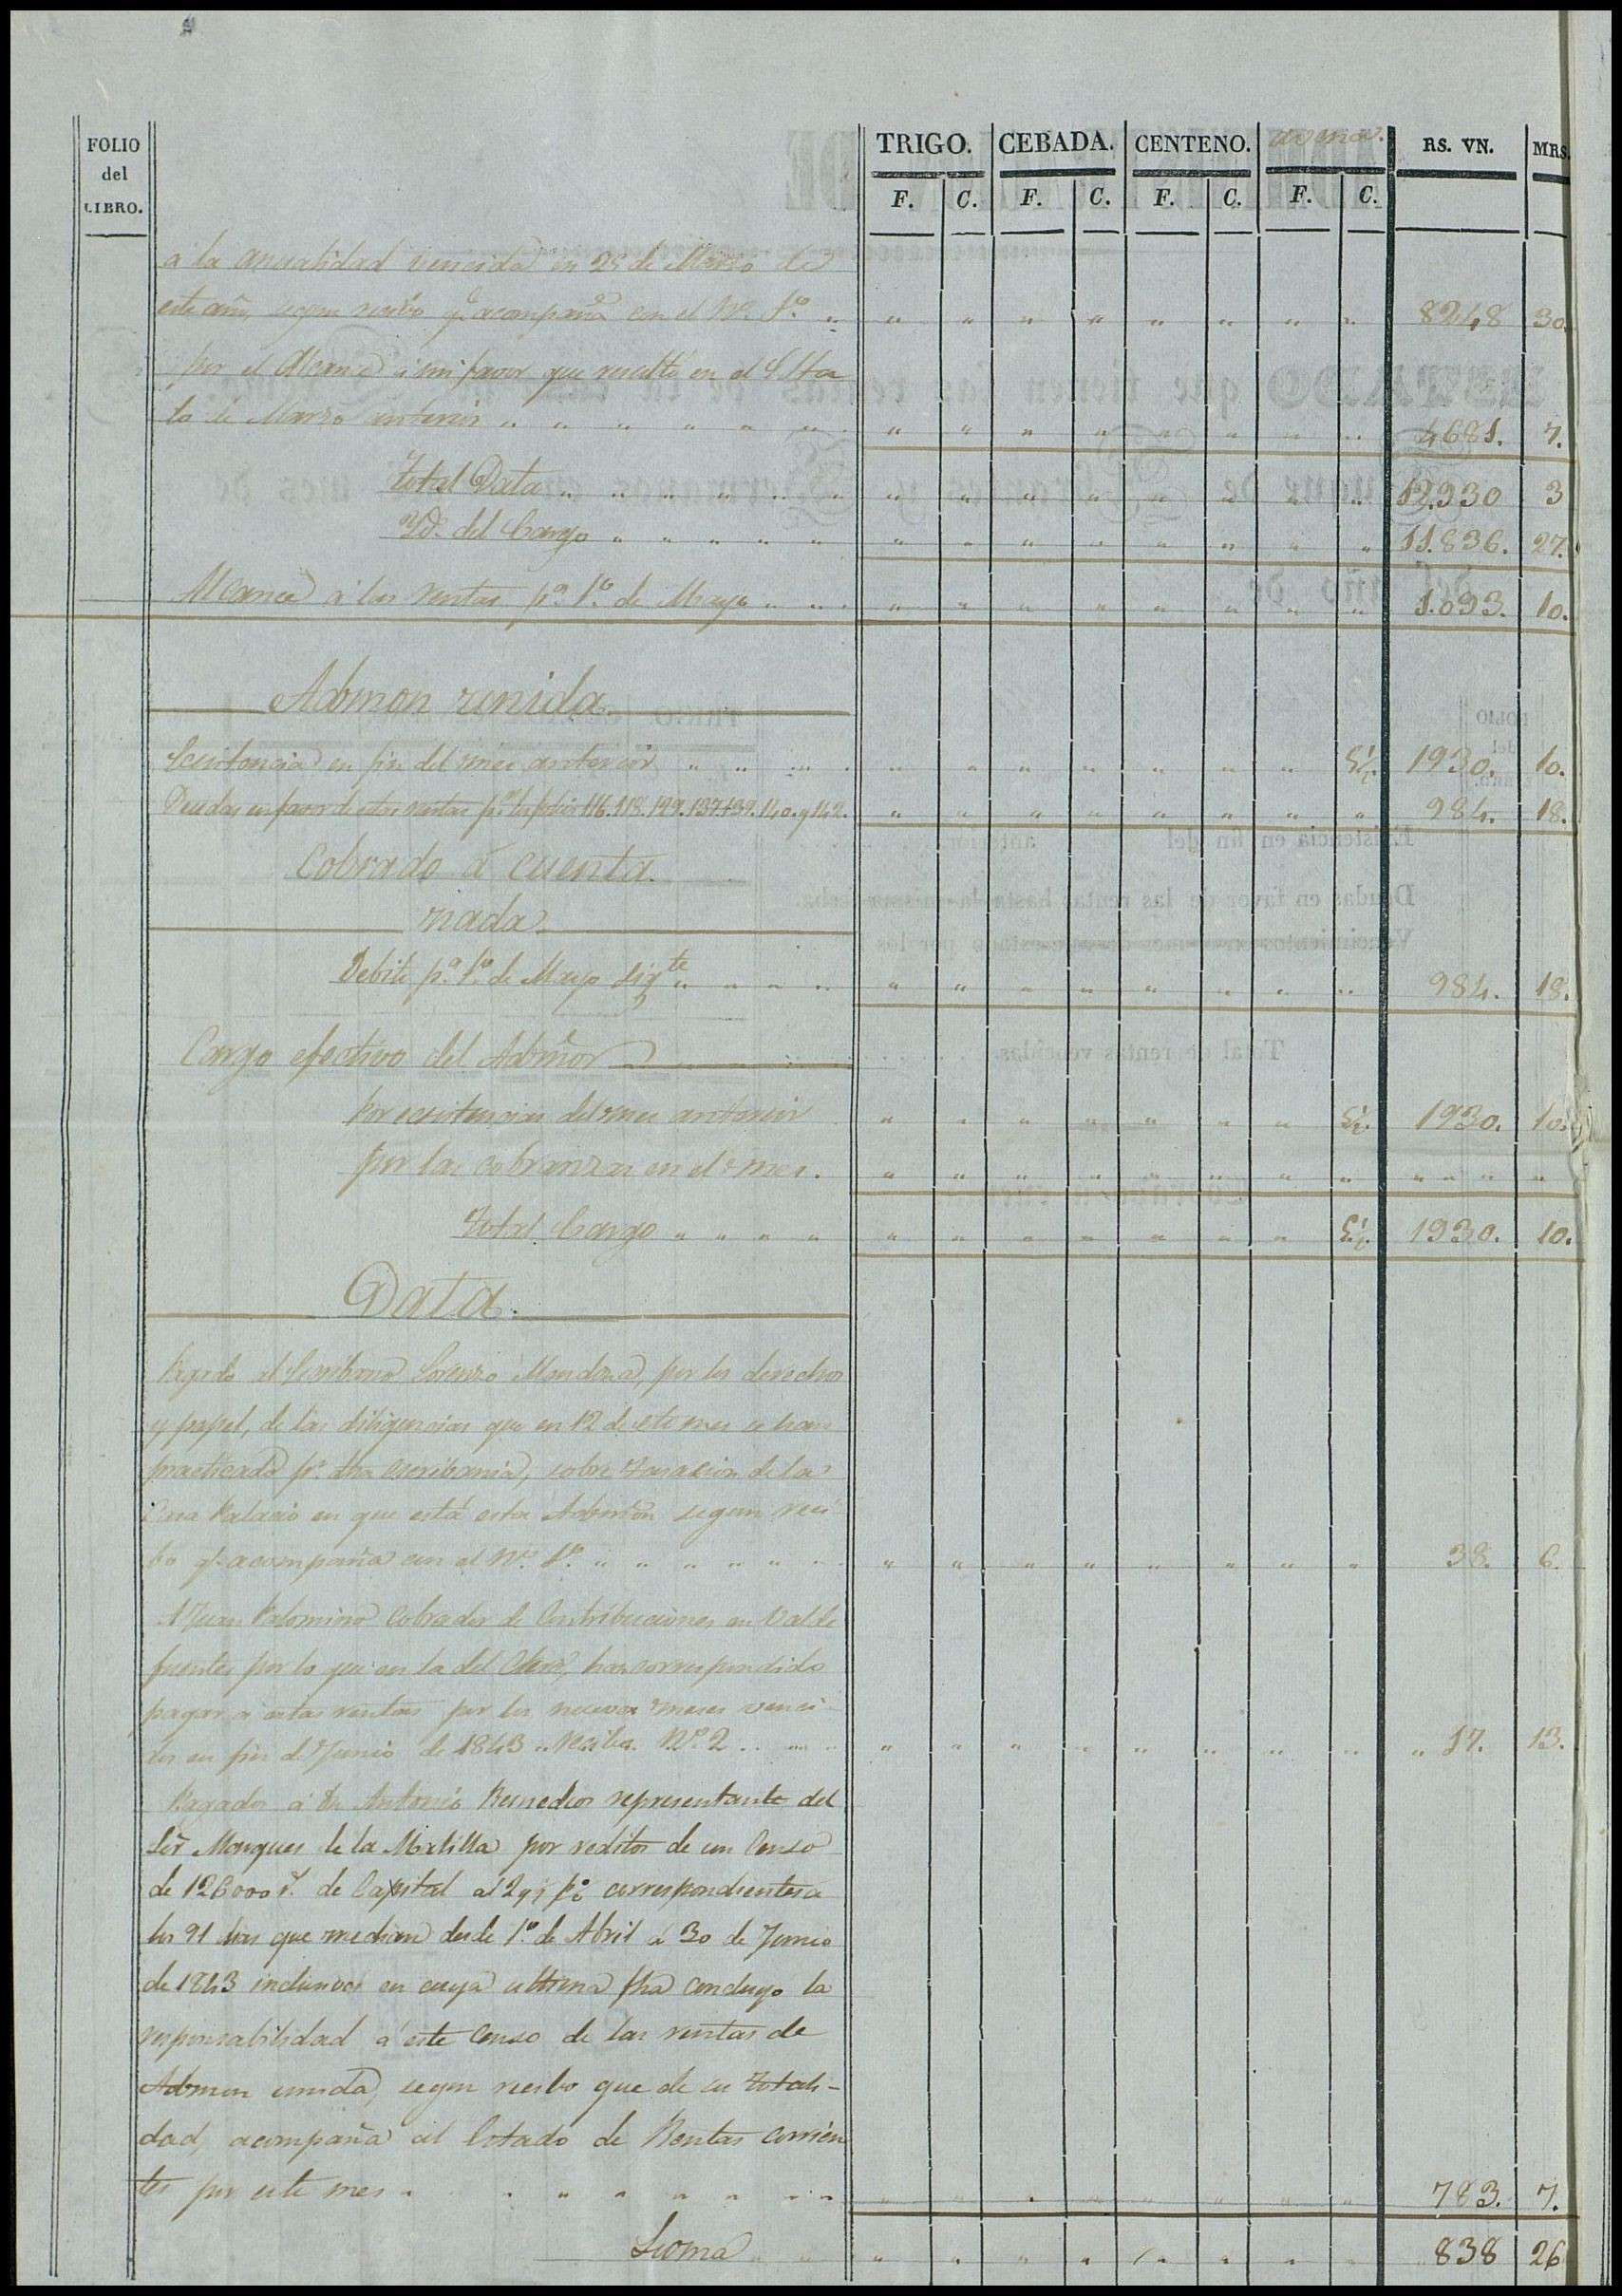 FOLIO del LIBRO. TRIGO. CEBADA. CENTENO. avena. RS. VN. MRS.
F. C. F. C. F. C. F. C.
á la anualidad vencida en 25 de Marzo de
este año, segun recibo q.e acompaña con el N.o 1.o " " " " " " " " " 8248 30.
por el Alcance á mi favor que resultó en el Esta
to de Marzo anterior " " " " " " " " " " " " " " 4681. 7.
Total Data " " " " " " " " " " " " " " 12.930 3
Yd. del Cargo " " " " " " " " " " " " " 11.836. 27.
Alcance á las rentas p.a 1.o de Mayo " " " " " " " " " " " 1.093. 10.
Admon unida
Ecsistencia en fin del mes anterior " " " " " " " " " " " 1930. 10.
Deudas en favor de estas rentas p.r los folios 116. 118. 129. 137. 139. 140. y 142. " " " " " " " " 984. 18.
Cobrado á cuenta.
nada
Debito p.a 1.o de Mayo sig.te " " " " " " " " " " " " 984. 18.
Cargo efectivo del Admor
Por ecsistencias del mes anterior " " " " " " " 1930. 10.
por las cobranzas en el mes. " " " " " " " " " " " "
Total Cargo " " " " " " " " " " " 1930. 10.
Data.
Pagado al Escribano Lorenzo Mendoza, por los derechos
y papel, de las diligencias que en 12 de este mes se han
practicado p.r dha escribania, sobre tasacion de la
Casa Palacio en que está esta Admon segun reci
bo q.e acompaña con el N.o 1.o " " " " " " " " " " " " " " 38. 6.
A Juan Palomino Cobrador de Contribuciones en Valde
fuentes por lo que en la del Clero, han correspondido
pagar á estas rentas por los nueve meses venci
dos en fin de Junio de 1843 " Recibo N.o 2 " " " " " " " " " " 17. 13.
Pagados á Dn Antonio Remedios representante del
Sor Marques de la Matilla por reditos de un Censo
de 126000 r.s de Capital al 2 y ½ p.o correspondientes a
los 91 dias que median desde 1.o de Abril á 30 de Junio
de 1843 inclusives en cuya ultima fha concluyo la
responsabilidad á este Censo de las rentas de
Admon unida, segun recibo que de su totali-
dad, acompaña al Estado de Rentas corrien
tes por este mes " " " " " " " " " " " " " " " 783. 7.
Suma " " " " " " " " " " 838 26